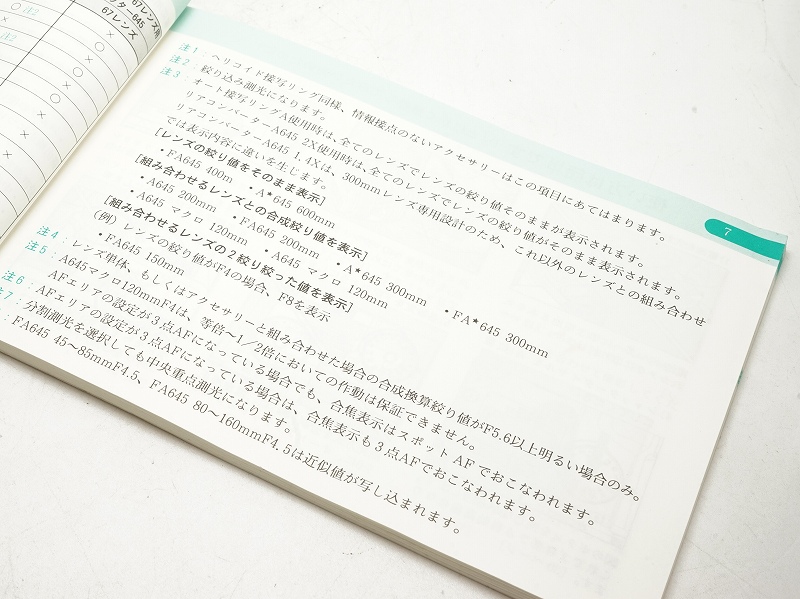 67レンズ用
ッター645
67レンズ
注2
注2
7
注1：ヘリコイド接写リング同様、情報接点のないアクセサリーはこの項目にあてはまります。
注2：絞り込み測光になります。
注3：オート接写リングA使用時は、全てのレンズでレンズの絞り値そのままが表示されます。
リアコンバーターA645 2X使用時は、全てのレンズでレンズの絞り値がそのまま表示されます。
リアコンバーターA645 1.4Xは、300mmレンズ専用設計のため、これ以外のレンズとの組み合わせ
では表示内容に違いを生じます。
[レンズの絞り値をそのまま表示]
・FA645 400m ・A★645 600mm
[組み合わせるレンズとの合成絞り値を表示]
・A645 200mm ・FA645 200mm ・A★645 300mm ・FA★645 300mm
・A645 マクロ 120mm ・A645 マクロ 120mm
[組み合わせるレンズの2絞り絞った値を表示]
(例) レンズの絞り値がF4の場合、F8を表示
・FA645 150mm
注4：レンズ単体、もしくはアクセサリーと組み合わせた場合の合成換算絞り値がF5.6以上明るい場合のみ。
注5：A645マクロ120mmF4は、等倍〜1/2倍においての作動は保証できません。
AFエリアの設定が3点AFになっている場合でも、合焦表示はスポット AF でおこなわれます。
注6：AFエリアの設定が3点AFになっている場合は、合焦表示も3点AFでおこなわれます。
注7：分割測光を選択しても中央重点測光になります。
：FA645 45〜85mmF4.5、FA645 80〜160mmF4.5は近似値が写し込まれます。